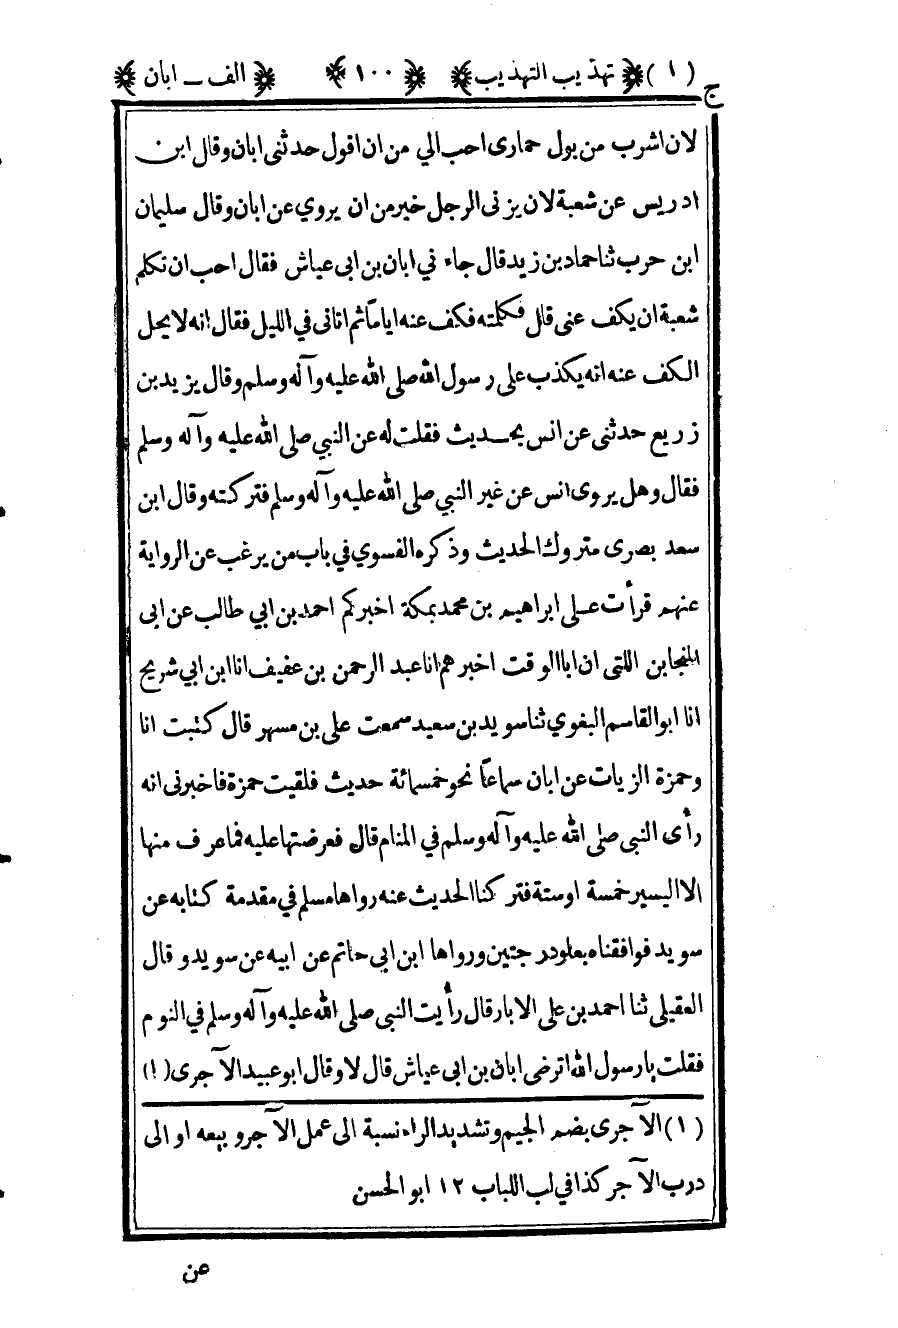 ج (١) ﴿تهذيب التهذيب﴾ ﴿١٠٠﴾ ﴿الف ــ ابان﴾
لان اشرب من بول حمارى احب الي من ان اقول حدثنى ابان وقال ابن
ادريس عن شعبة لان يزنى الرجل خير من ان يروي عن ابان وقال سليمان
ابن حرب ثنا حماد بن زيد قال جاء ني ابان بن ابى عياش فقال احب ان تكلم
شعبة ان يكف عنى قال فكلمته فكف عنه اياماً ثم اتانى في الليل فقال انه لا يحل
الكف عنه انه يكذب على رسول الله صلى الله عليه وآله وسلم وقال يزيد بن
زريع حدثنى عن انس بحـديث فقلت له عن النبي صلى الله عليه وآله وسلم
فقال وهل يروى انس عن غير النبي صلى الله عليه وآله وسلم فتركته وقال ابن
سعد بصرى متروك الحديث وذكره الفسوي في باب من يرغب عن الرواية
عنهم قرأت عـلى ابراهيم بن محمد بمكة اخبركم احمد بن ابي طالب عن ابى
المنجا بن اللتى ان ابا الوقت اخبرهم انا عبد الرحمن بن عفيف انا ابن ابي شريح
انا ابو القاسم البغوي ثنا سويد بن سعيد سمعت على بن مسهر قال كتبت انا
وحمزة الزيات عن ابان سماعاً نحو خمسمائة حديث فلقيت حمزة فاخبرنى انه
رأى النبى صلى الله عليه وآله وسلم في المنام قال فعرضتها عليه فما عرف منها
الا اليسير خمسة اوستة فتركنا الحديث عنه رواها مسلم في مقدمة كتابه عن
سويد فوافقناه بعلو درجتين ورواها ابن ابى حاتم عن ابيه عن سويد وقال
العقيلى ثنا احمد بن على الابار قال رأيت النبى صلى الله عليه وآله وسلم في النوم
فقلت يا رسول الله اترضى ابان بن ابى عياش قال لا وقال ابو عبيد الآجرى (١)
(١) الآجرى بضم الجيم وتشديد الراء نسبة الى عمل الآجر و بيعه او الى
درب الآجر كذا في لب اللباب ١٢ ابو الحسن
عن